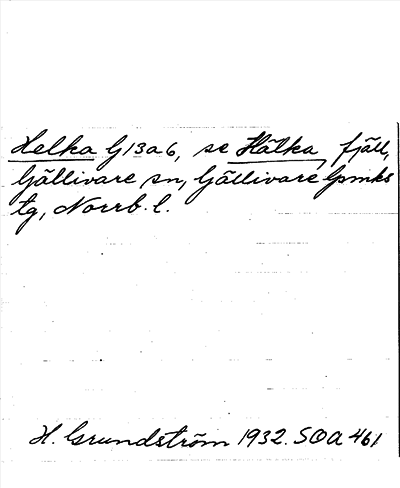 Helka G13a6, se Hälka, fjäll,
Gällivare sn, Gällivare lpmks
tg, Norrb. l.
H. Grundström 1932. SOA 461